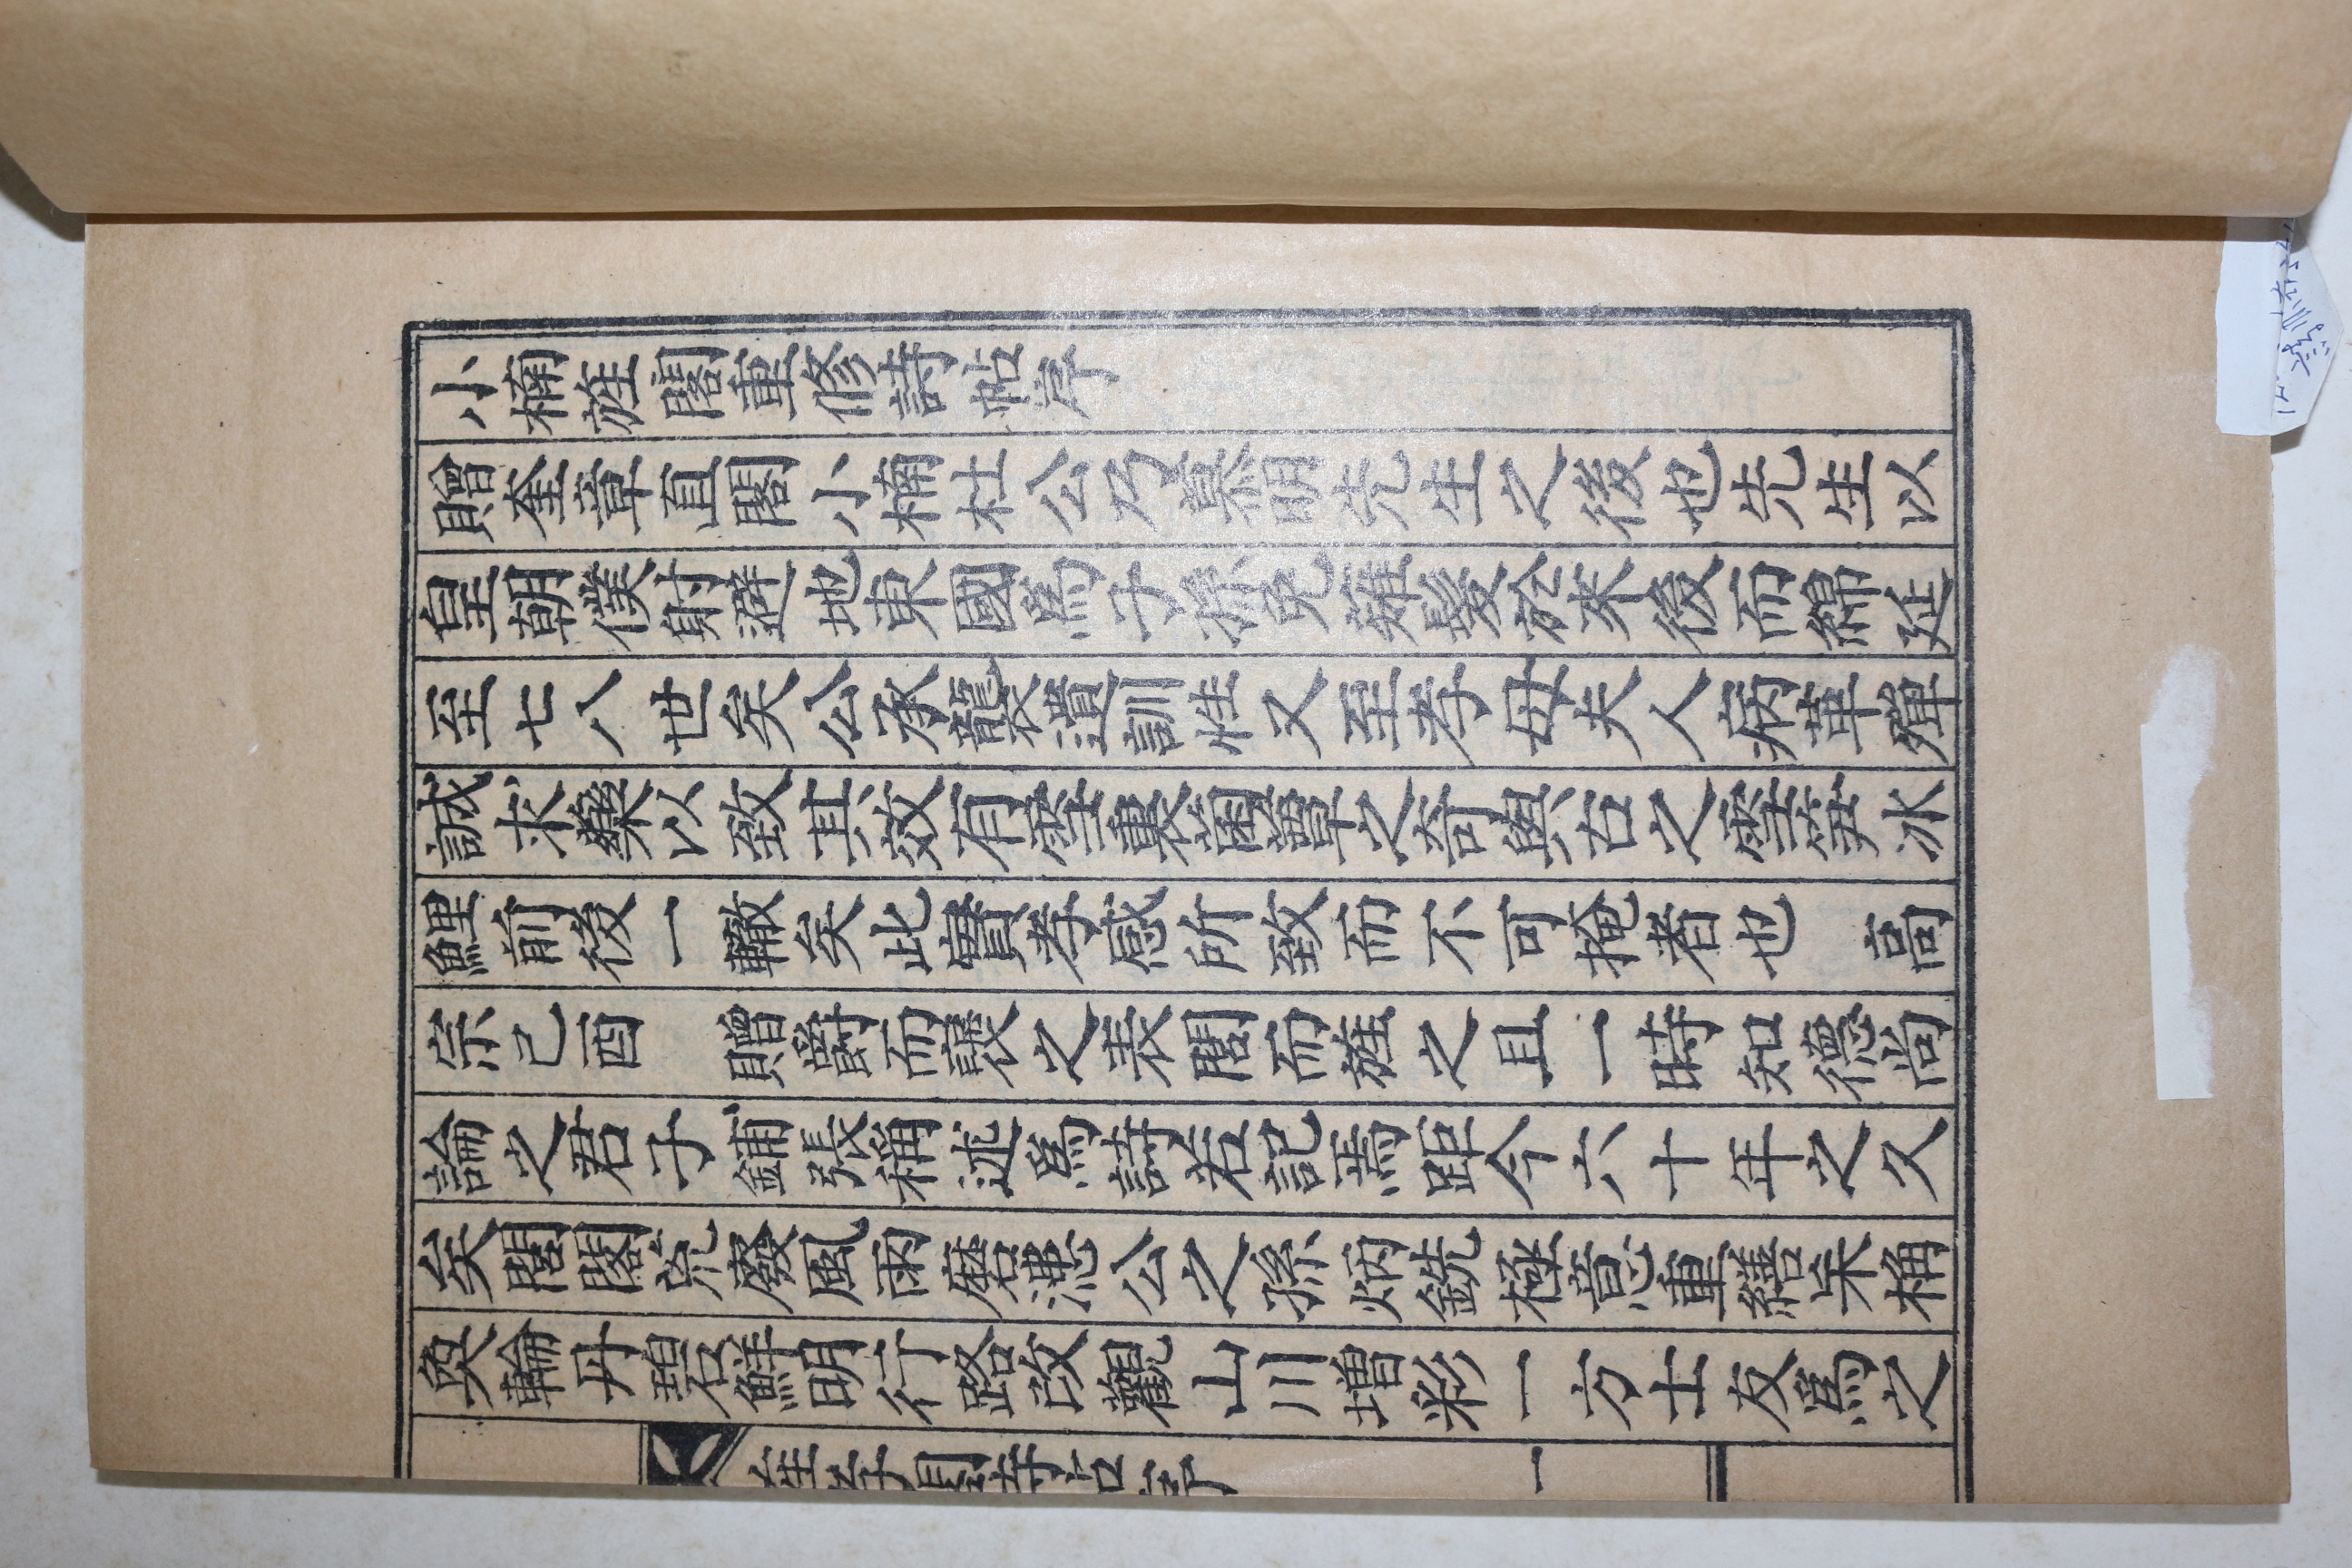 小楠旌閣重修詩帖序
贈奎章直閣小楠杜公乃慕明先生之後也先生以
皇朝僕射避地東國爲子孫免薙髮於來後而綿延
至七八世矣公承襲遺訓性又至孝母夫人病革殫
誠求藥以致其效有雪裏菌蕈之奇與古之雪笋冰
鯉前後一轍矣此實孝感所致而不可掩者也　高
宗己酉　贈爵而襃之表閭而旌之且一時知德尚
論之君子鋪張稱述爲詩若記焉距今六十年之久
矣閭閣荒廢風雨磨漶公之孫炳銑極意重繕杗桷
奐輪丹碧鮮明行路改觀山川增彩一方士友爲之
旌孝閣詩帖序
一